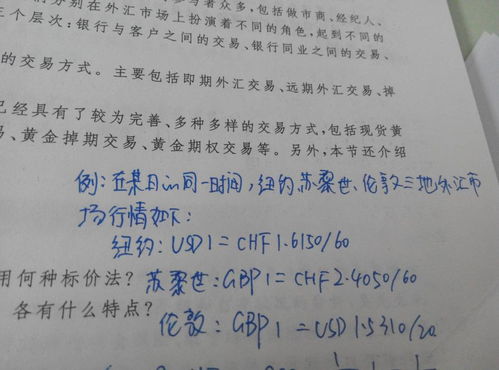 分别在外汇市场上扮演着不同的角色，起到不同的
个层次：银行与客户之间的交易、银行同业之间的交易、
的交易方式。主要包括即期外汇交易、远期外汇交易、掉
已经具有了较为完善、多种多样的交易方式，包括现货黄
易、黄金掉期交易、黄金期权交易等。另外，本节还介绍
例：在某日的同一时间，纽约、苏黎世、伦敦三地外汇市
场行情如下：
纽约：USD1=CHF1.6150/60
用何种标价法？ 苏黎世：GBP1=CHF2.4050/60
各有什么特点？
伦敦：GBP1=USD1.5310/20